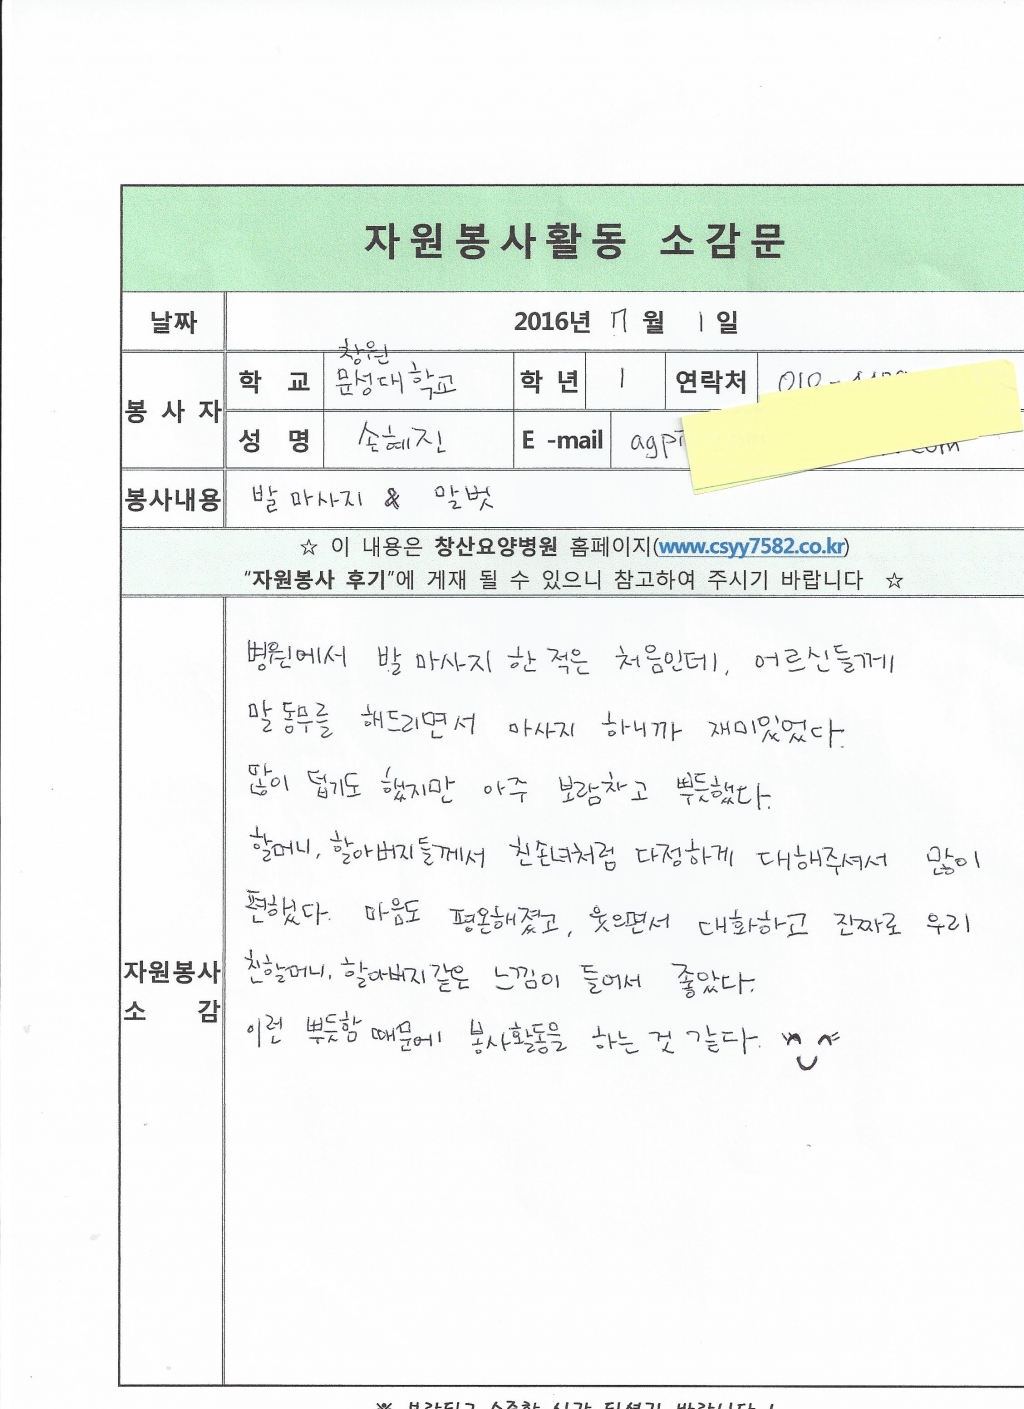 자원봉사활동 소감문
날짜 2016년 7월 1일
봉사자 학 교 창원 문성대학교 학년 1 연락처 010-
성 명 손혜진 E-mail
봉사내용 발 마사지 & 말벗
☆ 이 내용은 창산요양병원 홈페이지(www.csyy7582.co.kr)
"자원봉사 후기"에 게재 될 수 있으니 참고하여 주시기 바랍니다 ☆
자원봉사 소 감
병원에서 발 마사지 한 적은 처음인데, 어르신들께
말동무를 해드리면서 마사지 하니까 재미있었다.
많이 덥기도 했지만 아주 보람차고 뿌듯했다.
할머니, 할아버지들께서 친손녀처럼 다정하게 대해주셔서 많이
편했다. 마음도 평온해졌고, 웃으면서 대화하고 진짜로 우리
친할머니, 할아버지같은 느낌이 들어서 좋았다.
이런 뿌듯함 때문에 봉사활동을 하는 것 같다.